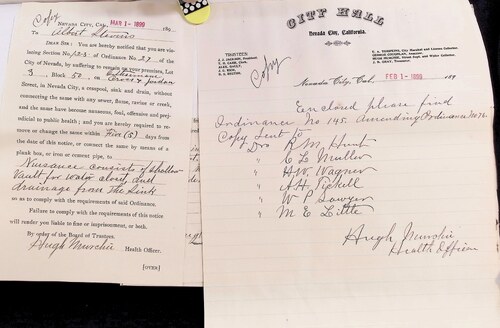 Copy
NEVADA CITY, CAL., MAR 1- 1899 189
To Albert Stevens
DEAR SIR: You are hereby notified that you are vio-
lating Section No. 1,2&3 of Ordinance No. 27 of the
City of Nevada, by suffering to remain on your premises, Lot
3 Block 50 on
Street, in Nevada City, a cesspool, sink and drain, without
connecting the same with any sewer, flume, ravine or creek,
and the same have become nauseous, foul, offensive and prej-
udicial to public health; and you are hereby required to re-
move or change the same within Five (5) days from the
date of this notice, or connect the same by means of a
plank box, or iron or cement pipe, to
Nuisance consists of shallow
Vault for water closet and
drainage from the Sink
so as to comply with the requirements of said Ordinance.
Failure to comply with the requirements of this notice
will render you liable to fine or imprisonment, or both.
By order of the Board of Trustees.
Hugh Murchie Health Officer.
[OVER]
CITY HALL
Nevada City, California.
TRUSTEES
Copy
Nevada City, Cal. FEB 1- 1899 189
Enclosed please find
Ordinance No 145. Amending Ordinance No 76.
Copy Sent to
Drs R M Hunt
" C L Muller
" H W. Wagner
" A H Tickell
" W P Sawyer
" M E Little
Hugh Murchie
Health Officer